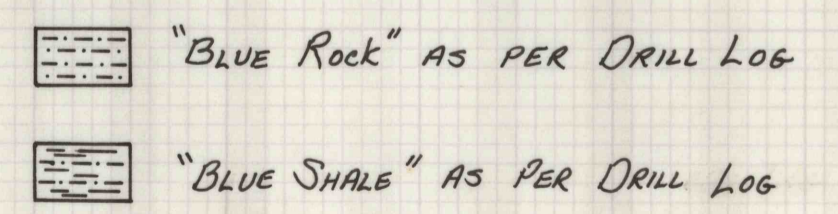 "Blue Rock" as per Drill Log
"Blue Shale" as Per Drill Log